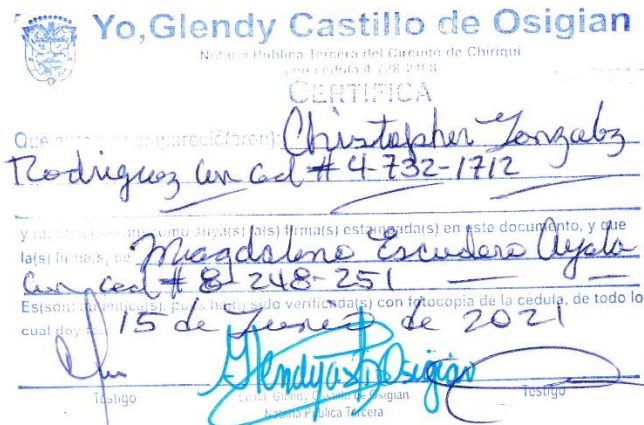 Yo, Glendy Castillo de Osigian
Notaria Pública Tercera del Circuito de Chiriquí
con cédula 4-728-2468
CERTIFICA
Que ante mi compareció(eron) Christopher Gonzalez
Rodriguez con ced # 4-732-1712
y como suya(s) la(s) firma(s) estampada(s) en este documento, y que
la(s) firma(s) de Magdalena Escudero Ayala
con ced # 8-248-251
Es(son) auténtica(s), pues han sido verificada(s) con fotocopia de la cedula, de todo lo
cual doy 15 de Junio de 2021
Testigo Licda. Glendy Castillo de Osigian Testigo
Notaria Pública Tercera